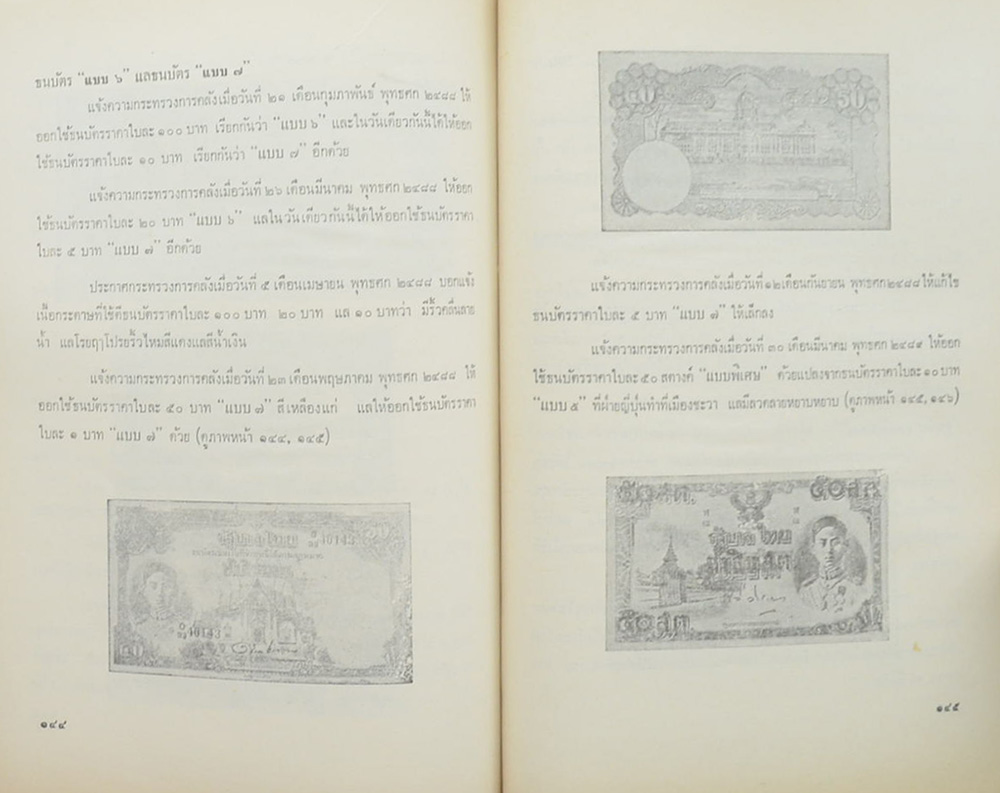 ธนบัตร "แบบ ๖" แลธนบัตร "แบบ ๗"
แจ้งความกระทรวงการคลังเมื่อวันที่ ๒๑ เดือนกุมภาพันธ์ พุทธศก ๒๔๘๘ ให้
ออกใช้ธนบัตรราคาใบละ ๑๐๐ บาท เรียกกันว่า "แบบ ๖" และในวันเดียวกันนี้ได้ให้ออก
ใช้ธนบัตรราคาใบละ ๑๐ บาท เรียกกันว่า "แบบ ๗" อีกด้วย
แจ้งความกระทรวงการคลังเมื่อวันที่ ๒๖ เดือนมีนาคม พุทธศก ๒๔๘๘ ให้ออก
ใช้ธนบัตรราคาใบละ ๒๐ บาท "แบบ ๖" แลในวันเดียวกันนี้ได้ให้ออกใช้ธนบัตรราคา
ใบละ ๕ บาท "แบบ ๗" อีกด้วย
ประกาศกระทรวงการคลังเมื่อวันที่ ๕ เดือนเมษายน พุทธศก ๒๔๘๘ บอกแจ้ง
เนื้อกระดาษที่ใช้ตีธนบัตรราคาใบละ ๑๐๐ บาท ๒๐ บาท แล ๑๐ บาทว่า มีริ้วคลื่นลาย
น้ำ แลโรยฤๅโปรยริ้วไหมสีแดงแลสีน้ำเงิน
แจ้งความกระทรวงการคลังเมื่อวันที่ ๒๓ เดือนพฤษภาคม พุทธศก ๒๔๘๘ ให้
ออกใช้ธนบัตรราคาใบละ ๕๐ บาท "แบบ ๗" สีเหลืองแก่ แลให้ออกใช้ธนบัตรราคา
ใบละ ๑ บาท "แบบ ๗" ด้วย (ดูภาพหน้า ๑๔๔, ๑๔๕)
รัฐบาลไทย
40143
40143
๑๔๔
50 50
แจ้งความกระทรวงการคลังเมื่อวันที่ ๑๒ เดือนกันยายน พุทธศก ๒๔๘๘ ให้แก้ไข
ธนบัตรราคาใบละ ๕ บาท "แบบ ๗" ให้เล็กลง
แจ้งความกระทรวงการคลังเมื่อวันที่ ๓๐ เดือนมีนาคม พุทธศก ๒๔๘๙ ให้ออก
ใช้ธนบัตรราคาใบละ ๕๐ สตางค์ "แบบพิเศษ" ด้วยแปลงจากธนบัตรราคาใบละ ๑๐ บาท
"แบบ ๕" ที่ฝ่ายญี่ปุ่นทำที่เมืองชะวา แลมีลวดลายหยาบหยาบ (ดูภาพหน้า ๑๔๕, ๑๔๖)
๕๐ส.ต. ๕๐ส.ต.
รัฐบาลไทย
๕๐ส.ต.
๑๔๕